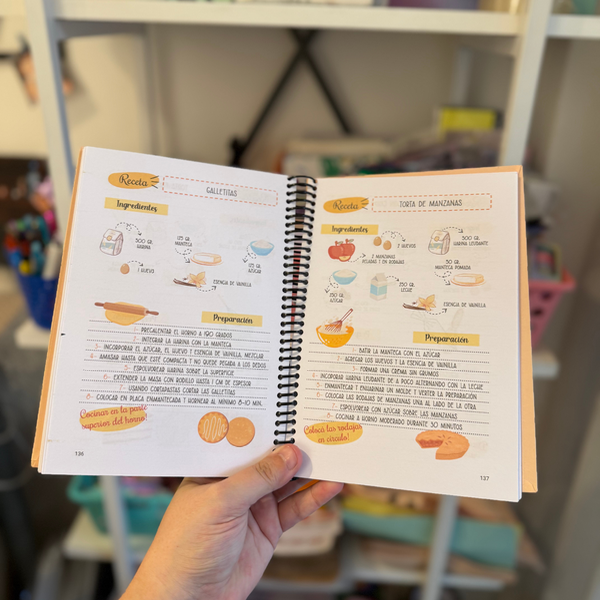 Receta
GALLETITAS
Ingredientes
500 GR.
HARINA
125 GR.
MANTECA
125 GR.
AZUCAR
1 HUEVO
ESENCIA DE VAINILLA
Preparación
1- PRECALENTAR EL HORNO A 190 GRADOS
2- INTEGRAR LA HARINA CON LA MANTECA
3- INCORPORAR EL AZÚCAR, EL HUEVO Y ESENCIA DE VAINILLA, MEZCLAR
4- AMASAR HASTA QUE ESTÉ COMPACTA Y NO QUEDE PEGADA A LOS DEDOS
5- ESPOLVOREAR HARINA SOBRE LA SUPERFICIE
6- EXTENDER LA MASA CON RODILLO HASTA 1 CM DE ESPESOR
7- USANDO CORTAPASTAS CORTAR LAS GALLETITAS
8- COLOCAR EN PLACA ENMANTECADA Y HORNEAR AL MÍNIMO 8-10 MIN.
Cocinar en la parte
superior del horno!
136
Receta
TORTA DE MANZANAS
Ingredientes
2 MANZANAS
PELADAS Y EN RODAJAS
2 HUEVOS
500 GR.
HARINA LEUDANTE
250 GR.
AZUCAR
250 GR.
LECHE
50 GR.
MANTECA POMADA
ESENCIA DE VAINILLA
Preparación
1- BATIR LA MANTECA CON EL AZÚCAR
2- AGREGAR LOS HUEVOS Y LA ESENCIA DE VAINILLA
3- FORMAR UNA CREMA SIN GRUMOS
4- INCORPORAR HARINA LEUDANTE DE A POCO ALTERNANDO CON LA LECHE
5- ENMANTECAR Y ENHARINAR UN MOLDE Y VERTER LA PREPARACIÓN
6- COLOCAR LAS RODAJAS DE MANZANAS UNA AL LADO DE LA OTRA
7- ESPOLVOREAR CON AZÚCAR SOBRE LAS MANZANAS
8- COCINAR A HORNO MODERADO DURANTE 50 MINUTOS
Colocá las rodajas
en círculo!
137